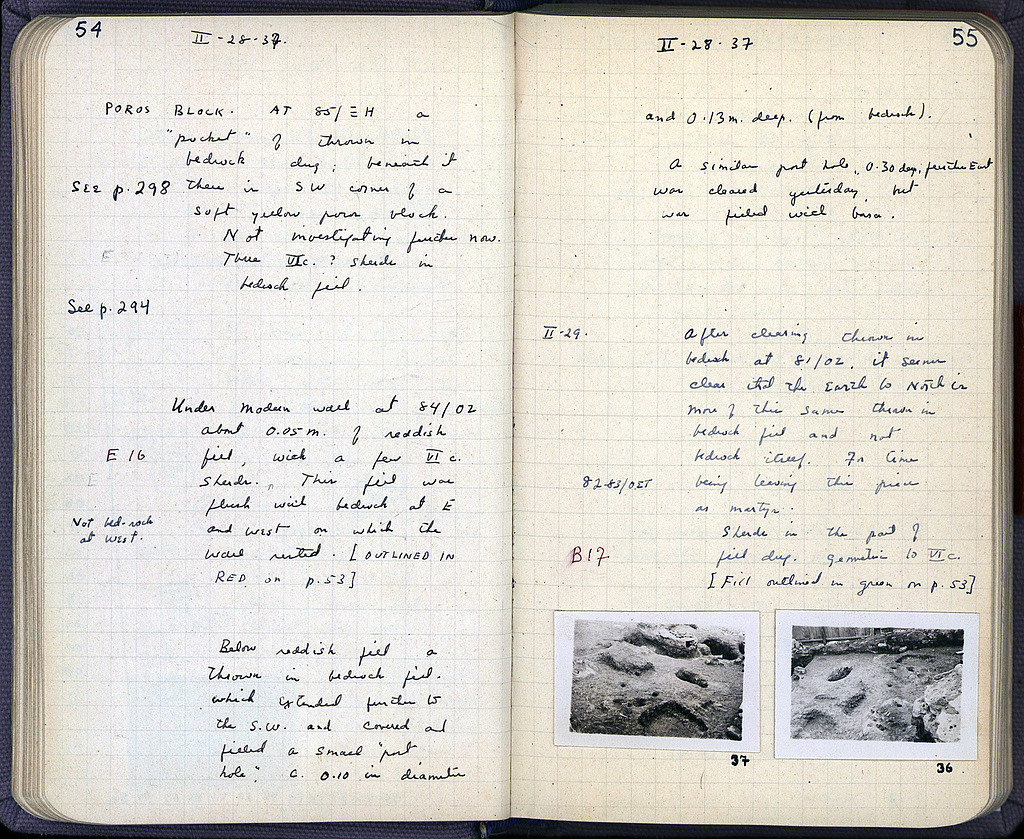 54
II-28-37.
POROS BLOCK. AT 85/ΞH a
"pocket" of thrown in
bedrock dug; beneath it
SEE p. 298 there is SW corner of a
soft yellow poros block.
Not investigating further now.
Three VIc. ? sherds in
bedrock fill.
See p. 294
Under modern wall at 84/02
about 0.05 m. of reddish
E 16 fill, with a few VI c.
sherds. This fill was
flush with bedrock at E
Not bed-rock
at West.
and west on which the
wall rested. [OUTLINED IN
RED on p.53]
Below reddish fill a
thrown in bedrock fill.
which extended further to
the S.W. and covered and
filled a small "post
hole", c. 0.10 in diameter
55
II-28-37
and 0.13m. deep. (from bedrock).
A similar post hole, 0.30 deep, further East
was cleared yesterday, but
was filled with
II-29. After clearing thrown in
bedrock at 81/02, it seems
clear that the Earth to North is
more of this same thrown in
bedrock fill and not
bedrock itself. For time
82-83/ being leaving this piece
as martyr.
Sherds in the part of
B17 fill dug. geometric to VI c.
[Fill outlined in green on p.53]
37
36